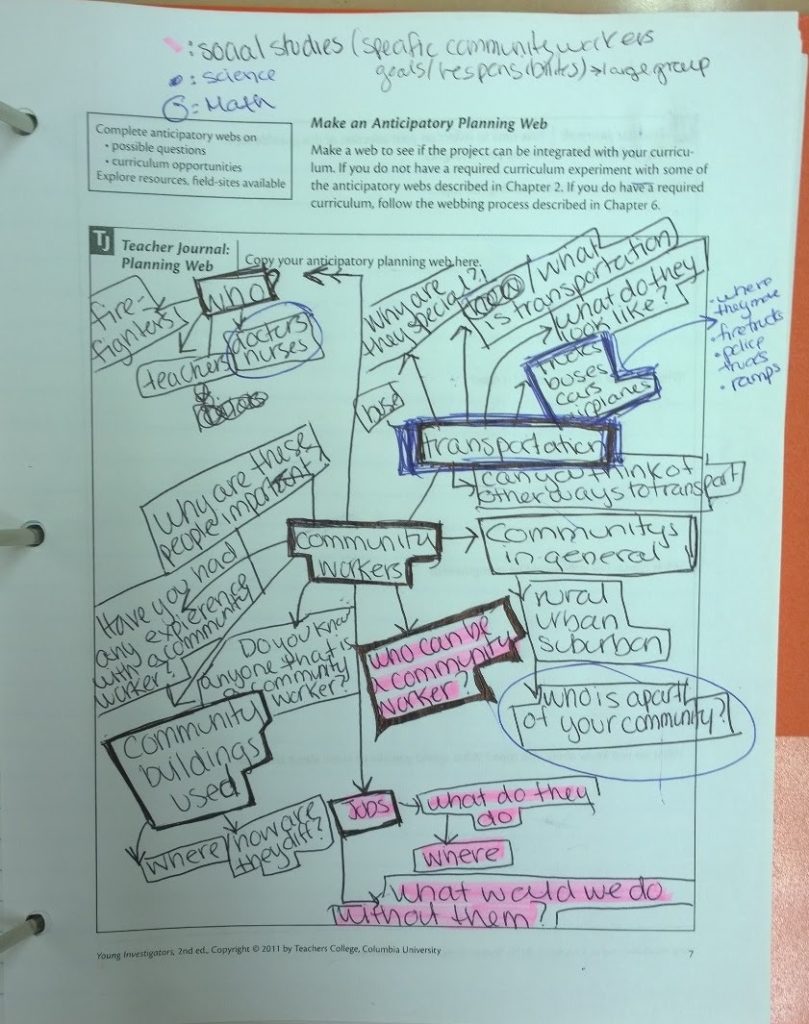 : social studies (specific community workers
goals/responsibilites) → large group
: science
: Math
Complete anticipatory webs on
• possible questions
• curriculum opportunities
Explore resources, field-sites available
Make an Anticipatory Planning Web
Make a web to see if the project can be integrated with your curricu-
lum. If you do not have a required curriculum experiment with some of
the anticipatory webs described in Chapter 2. If you do have a required
curriculum, follow the webbing process described in Chapter 6.
TJ
Teacher Journal:
Planning Web
Copy your anticipatory planning web here.
who
fire-
fighters
teachers
doctors
nurses
why are
they special?
/what
is transportation
what do they
look like?
trucks
buses
cars
airplanes
• where
they move
• firetrucks
• police
trucks
• ramps
transportation
can you think of
other ways to transport
why are these
people important
community
workers
communitys
in general
rural
urban
suburban
who is apart
of your community?
Have you had
any explerence
with a community
worker?
Do you know
anyone that is
a community
worker?
who can be
a community
worker?
community
buildings
used
where
how are
they diff?
Jobs
what do they
do
where
what would we do
without them?
Young Investigators, 2nd ed., Copyright © 2011 by Teachers College, Columbia University
7